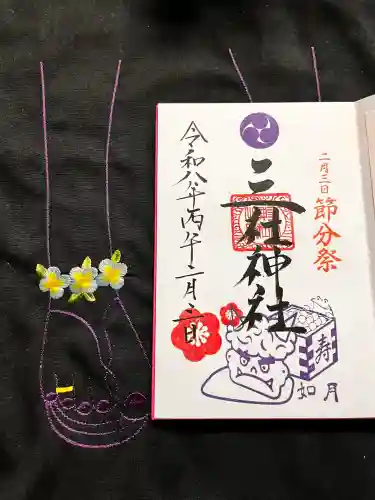 二月三日
節分祭
三社神社
令和八年丙午二月三日
寿
如月